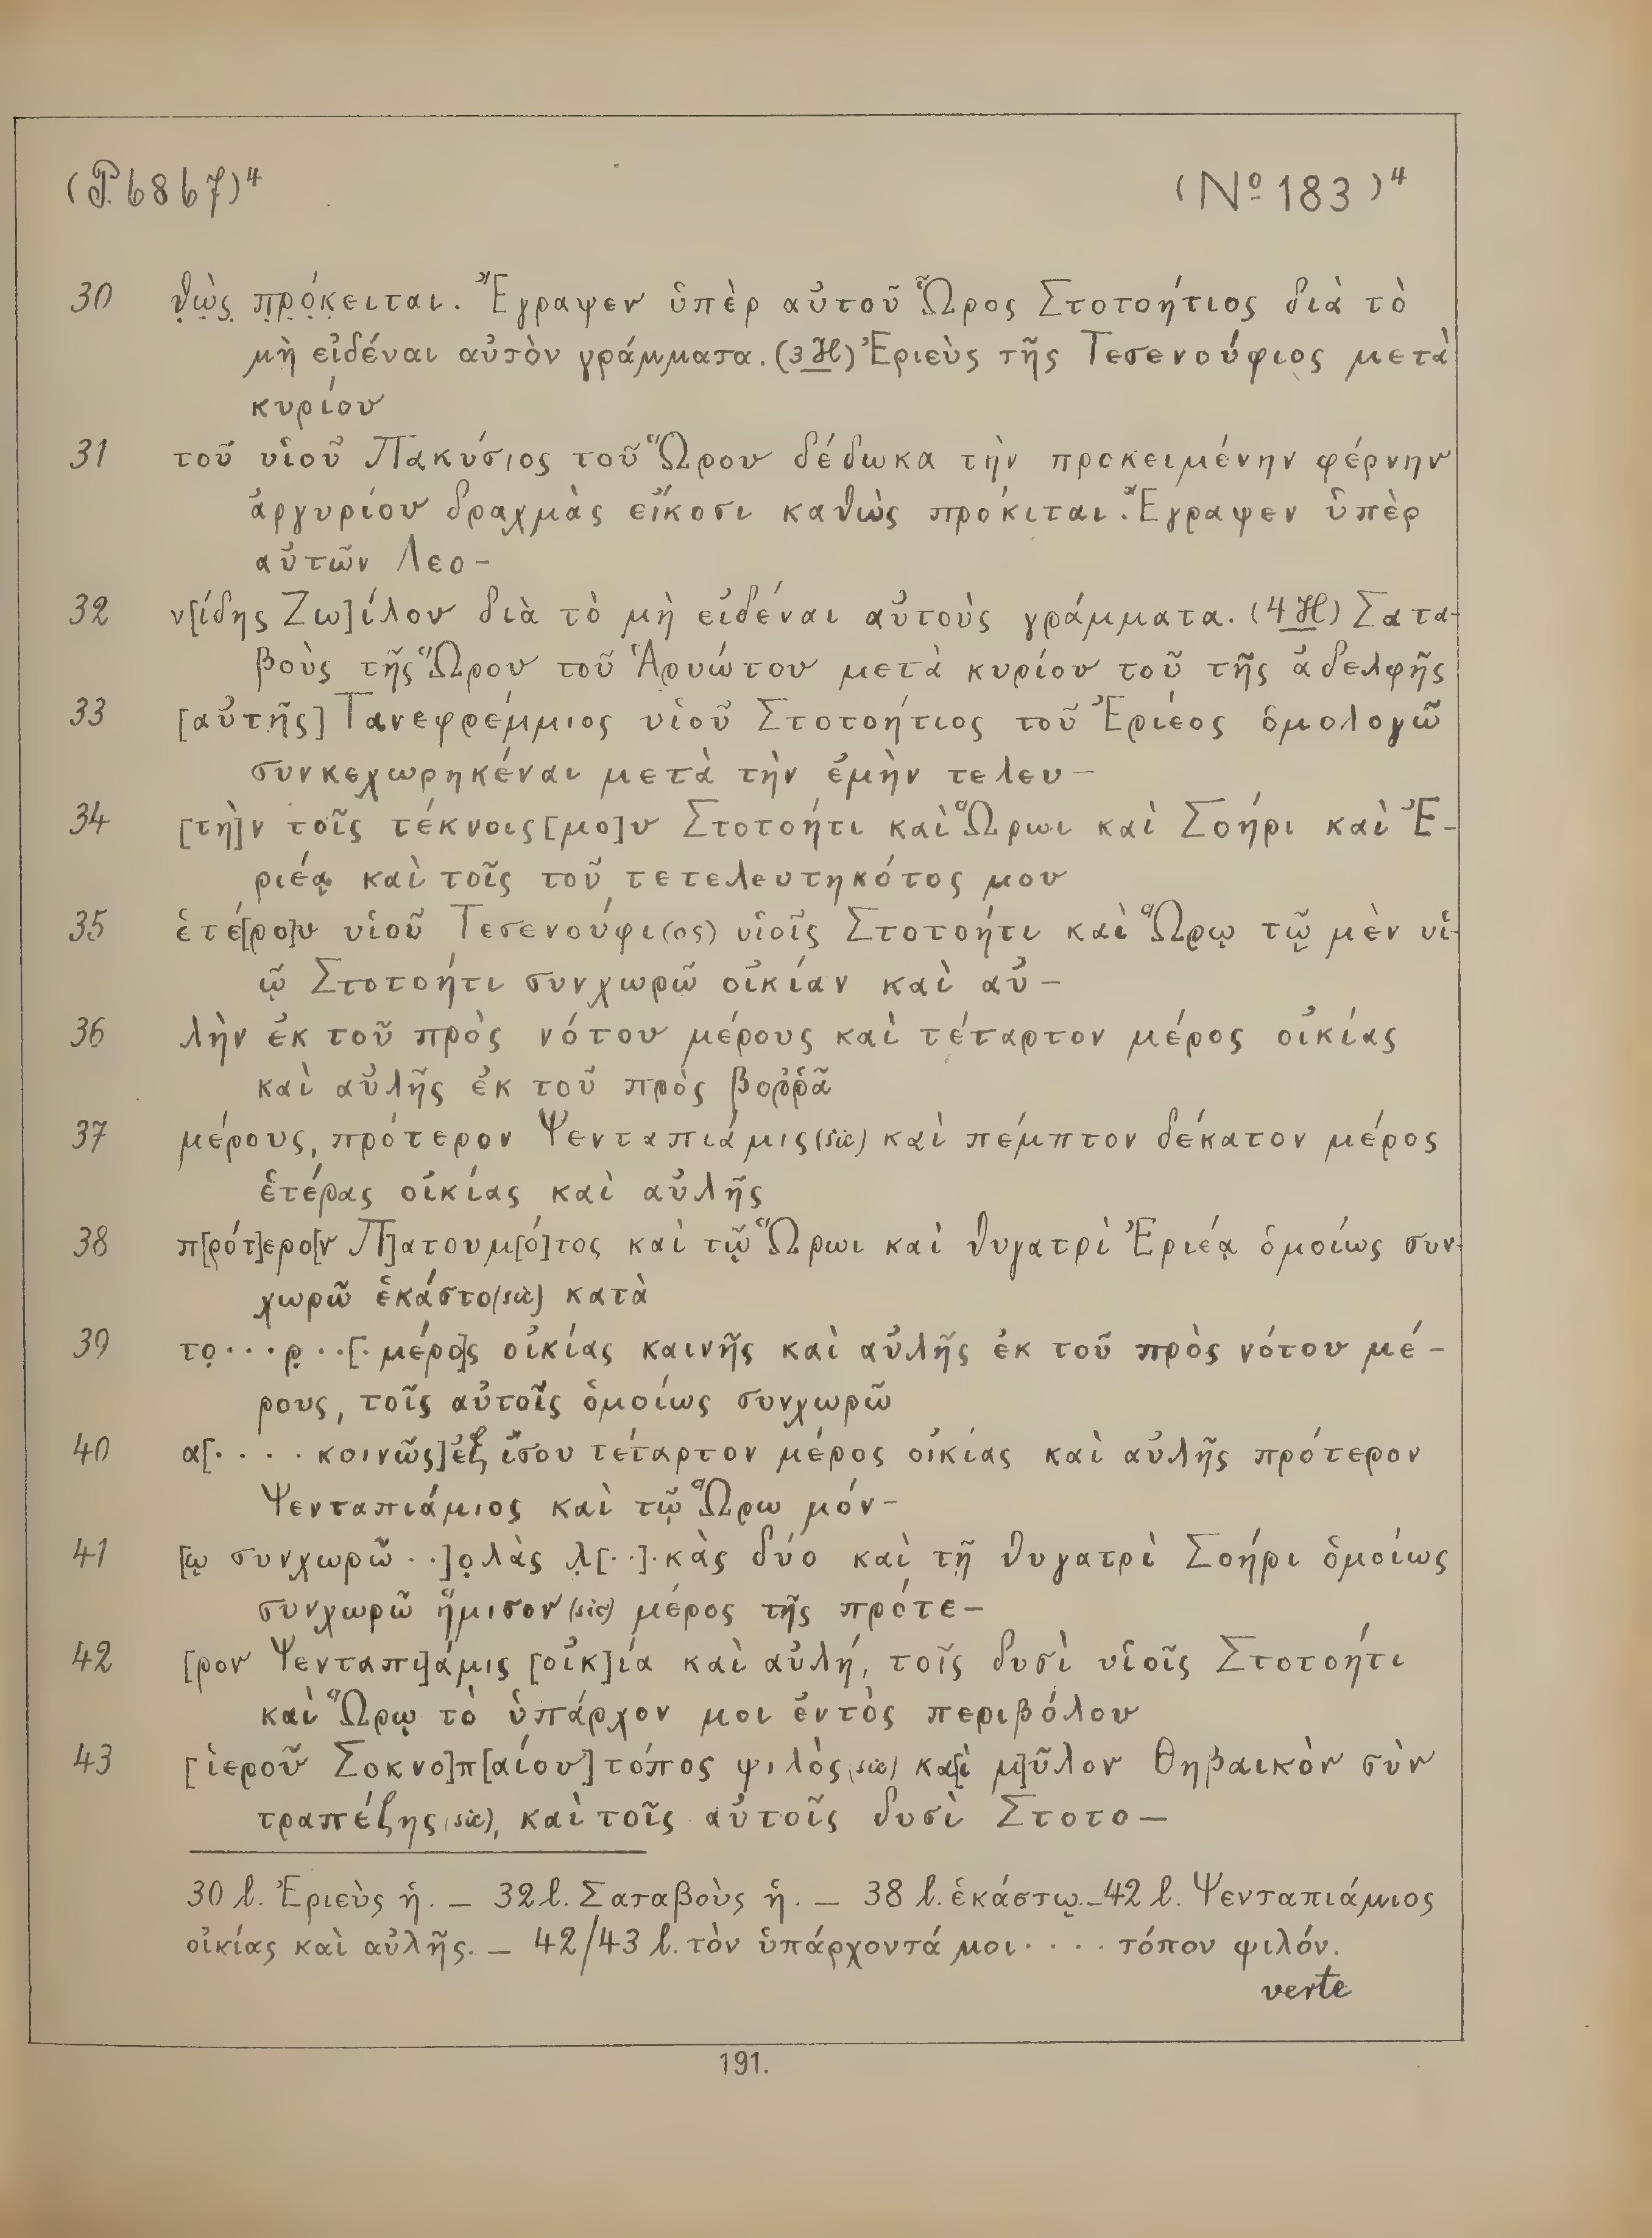 (P. 6867)⁴ (Nº 183)⁴
30 θ̣ὼ̣ς̣ π̣ρ̣ό̣κ̣ειται. Ἔγραψεν ὑπὲρ αὐτοῦ Ὧρος Στοτοήτιος διὰ τὸ
μὴ εἰδέναι αὐτὸν γράμματα. (3 H) Ἐριεὺς τῆς Τεσενούφιος μετὰ
κυρίου
31 τοῦ υἱοῦ Πακύσιος τοῦ Ὥρου δέδωκα τὴν προκειμένην φέρνην
ἀργυρίου δραχμὰς εἴκοσι καθὼς πρόκιται. Ἔγραψεν ὑπὲρ
αὐτῶν Λεο-
32 ν[ίδης Ζω]ίλου διὰ τὸ μὴ εἰδέναι αὐτοὺς γράμματα. (4 H) Σατα-
βοὺς τῆς Ὥρου τοῦ Ἁρυώτου μετὰ κυρίου τοῦ τῆς ἀδελφῆς
33 [αὐτῆς] Τανεφρέμμιος υἱοῦ Στοτοήτιος τοῦ Ἐριέος ὁμολογῶ
συνκεχωρηκέναι μετὰ τὴν ἐμὴν τελευ-
34 [τὴ]ν τοῖς τέκνοις [μο]υ Στοτοήτι καὶ Ὥρωι καὶ Σοήρι καὶ Ἐ-
ριέᾳ καὶ τοῖς τοῦ τετελευτηκότος μου
35 ἑτέ[ρο]υ υἱοῦ Τεσενούφι(ος) υἱοῖς Στοτοήτι καὶ Ὥρῳ τῷ μὲν υἱ-
ῷ Στοτοήτι συνχωρῶ οἰκίαν καὶ αὐ-
36 λὴν ἐκ τοῦ πρὸς νότου μέρους καὶ τέταρτον μέρος οἰκίας
καὶ αὐλῆς ἐκ τοῦ πρὸς βοῤῥᾶ
37 μέρους, πρότερον Ψενταπιάμις (sic) καὶ πέμπτον δέκατον μέρος
ἑτέρας οἰκίας καὶ αὐλῆς
38 π[ρότ]ερο[ν Π]ατουμ[ό]τος καὶ τῷ Ὥρωι καὶ θυγατρὶ Ἐριέᾳ ὁμοίως συν-
χωρῶ ἑκάστο (sic) κατὰ
39 το̣ · · · ρ̣ · · [· μέρο]ς οἰκίας καινῆς καὶ αὐλῆς ἐκ τοῦ πρὸς νότου μέ-
ρους, τοῖς αὐτοῖς ὁμοίως συνχωρῶ
40 α[· · · · κοινῶς] ἐξ ἴσου τέταρτον μέρος οἰκίας καὶ αὐλῆς πρότερον
Ψενταπιάμιος καὶ τῷ Ὥρω μόν-
41 [ῳ συνχωρῶ · ·]ο̣λὰς λ̣[· ·]·κὰς δύο καὶ τῇ θυγατρὶ Σοήρι ὁμοίως
συνχωρῶ ἥμισον (sic) μέρος τῆς πρότε-
42 [ρον Ψενταπι]άμις [οἰκ]ία καὶ αὐλή, τοῖς δυσὶ υἱοῖς Στοτοήτι
καὶ Ὥρῳ τὸ ὑπάρχον μοι ἐντὸς περιβόλου
43 [ἱεροῦ Σοκνο]π[αίου] τόπος ψιλὸς (sic) κα[ὶ μ]ῦλον Θηβαικὸν σὺν
τραπέζης (sic), καὶ τοῖς αὐτοῖς δυσὶ Στοτο-
30 l. Ἐριεὺς ἡ. — 32 l. Σαταβοὺς ἡ. — 38 l. ἑκάστῳ. — 42 l. Ψενταπιάμιος
οἰκίας καὶ αὐλῆς. — 42/43 l. τὸν ὑπάρχοντά μοι · · · · τόπον ψιλόν.
verte
191.